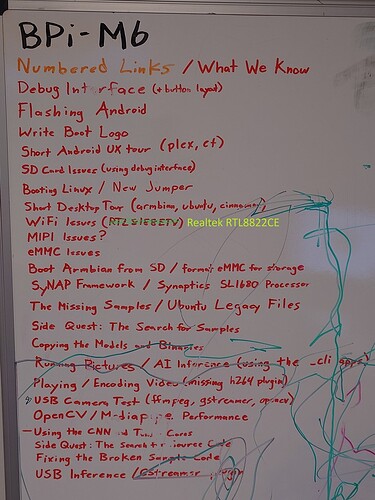 BPi-M6
Numbered Links / What We Know
Debug Interface (+ button layout)
Flashing Android
Write Boot Logo
Short Android UX tour (plex, ct)
SD Card Issues (using debug interface)
Booting Linux / New Jumper
Short Desktop Tour (armbian, ubuntu, cinnamon)
WiFi Issues (RTL 8188ETV) Realtek RTL8822CE
MIPI Issues?
eMMC Issues
Boot Armbian from SD / format eMMC for storage
SyNAP Framework / Synaptics SL1680 Processor
The Missing Samples / Ubuntu Legacy Files
Side Quest: The Search for Samples
Copying the Models and Binaries
Running Pictures / AI Inference (using the _cli apps)
Playing / Encoding Video (missing h264 plugin)
USB Camera Test (ffmpeg, gstreamer, opencv)
OpenCV / Mediapipe Performance
— Using the CNN and Cores
Side Quest: The Search Source Code
Fixing the Broken Sample Code
USB Inference / Gstreamer